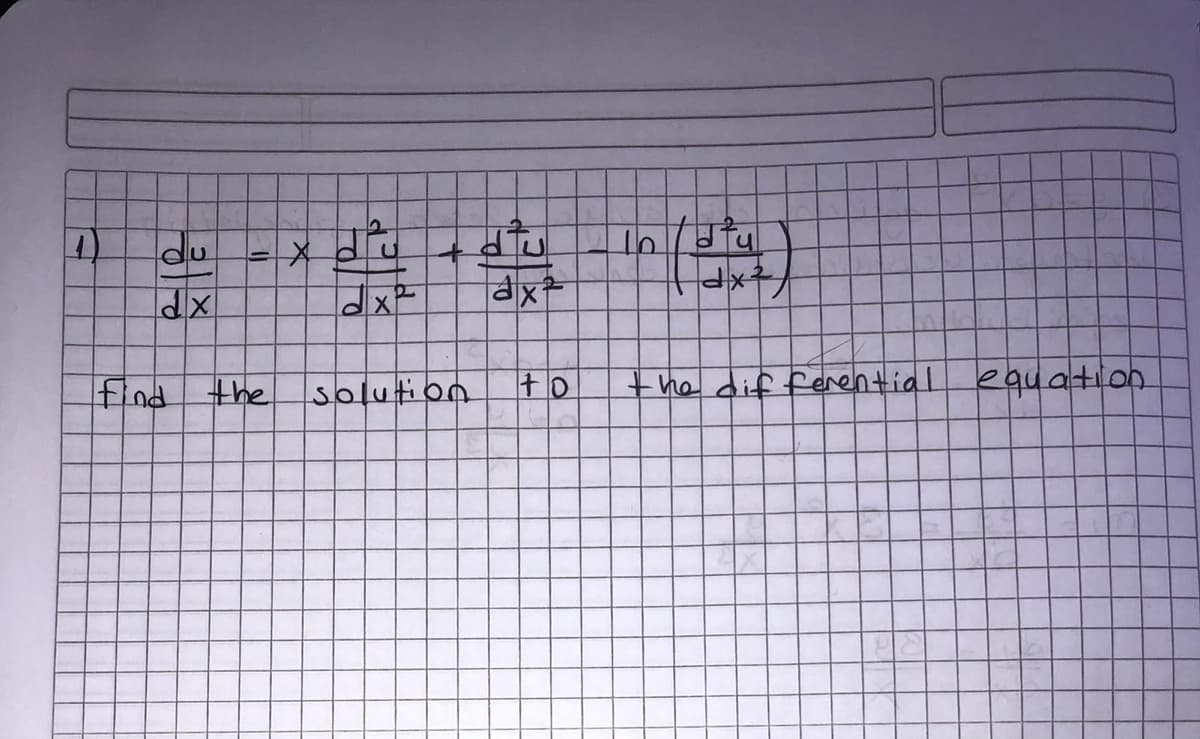 1) du/dx = x d²u/dx² + d²u/dx² - ln (d²u/dx²)
find the solution to the differential equation